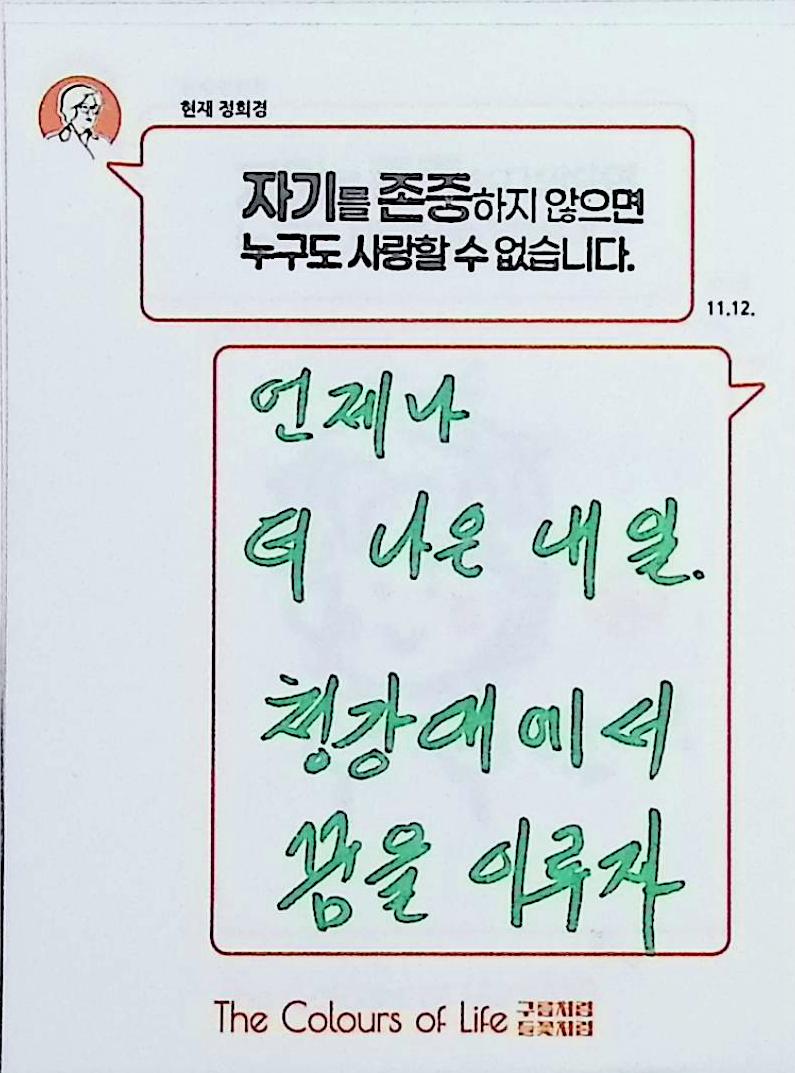 현재 정희경
자기를 존중하지 않으면
누구도 사랑할 수 없습니다.
11.12.
언제나
더 나은 내일.
청강대에서
꿈을 이루자
The Colours of Life 구름처럼
들꽃처럼